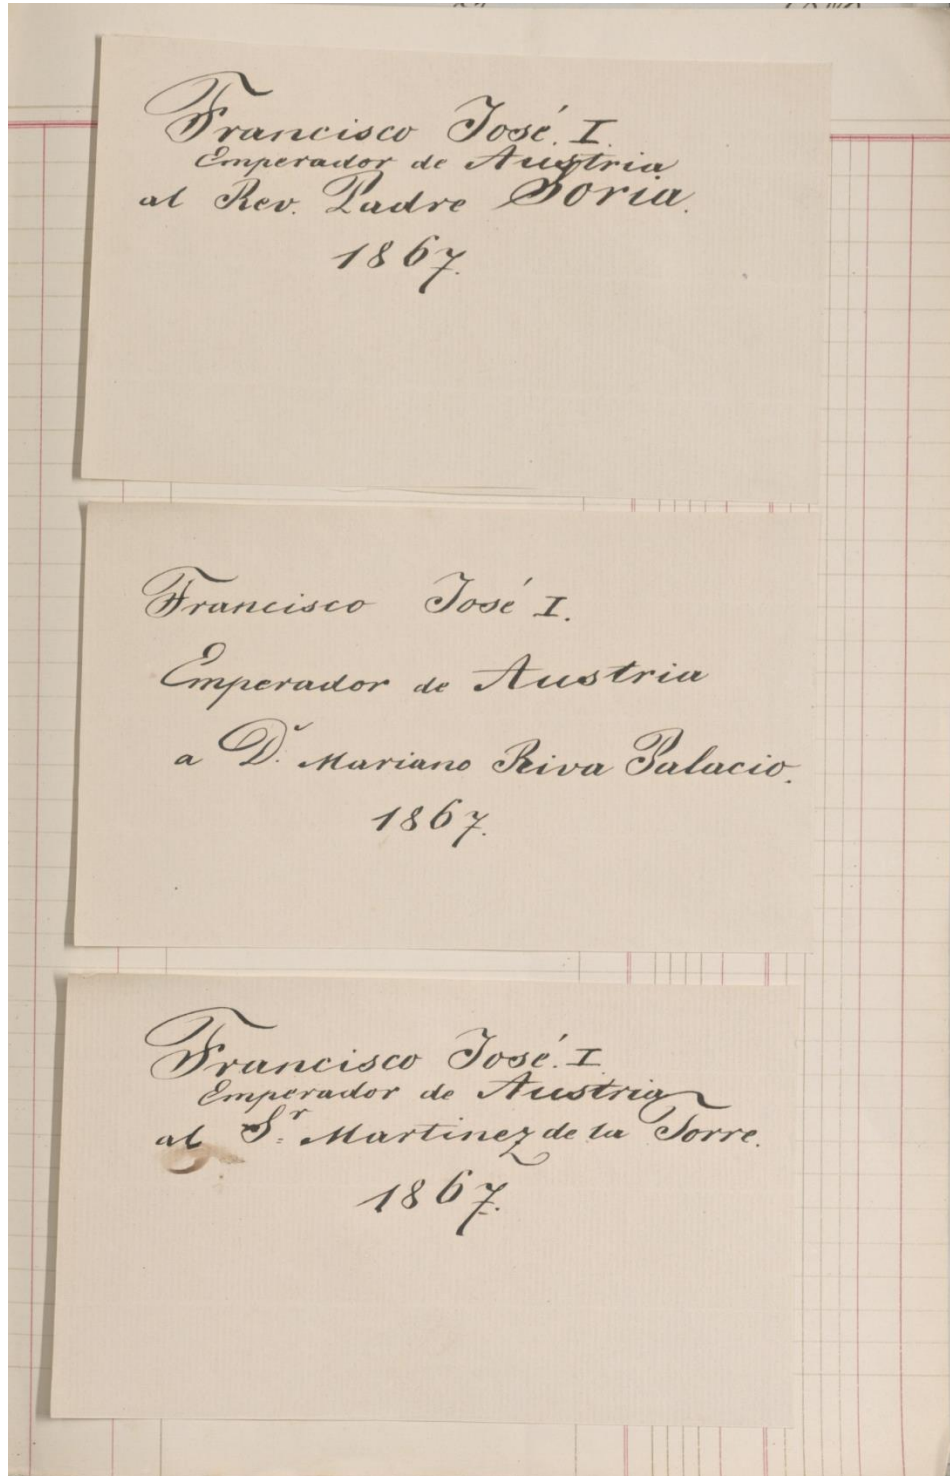 Francisco José. I.
Emperador de Austria
al Rev. Padre Soria.
1867.
Francisco José I.
Emperador de Austria
a D.n Mariano Riva Palacio.
1867.
Francisco José. I.
Emperador de Austria
al S.r Martinez de la Torre.
1867.